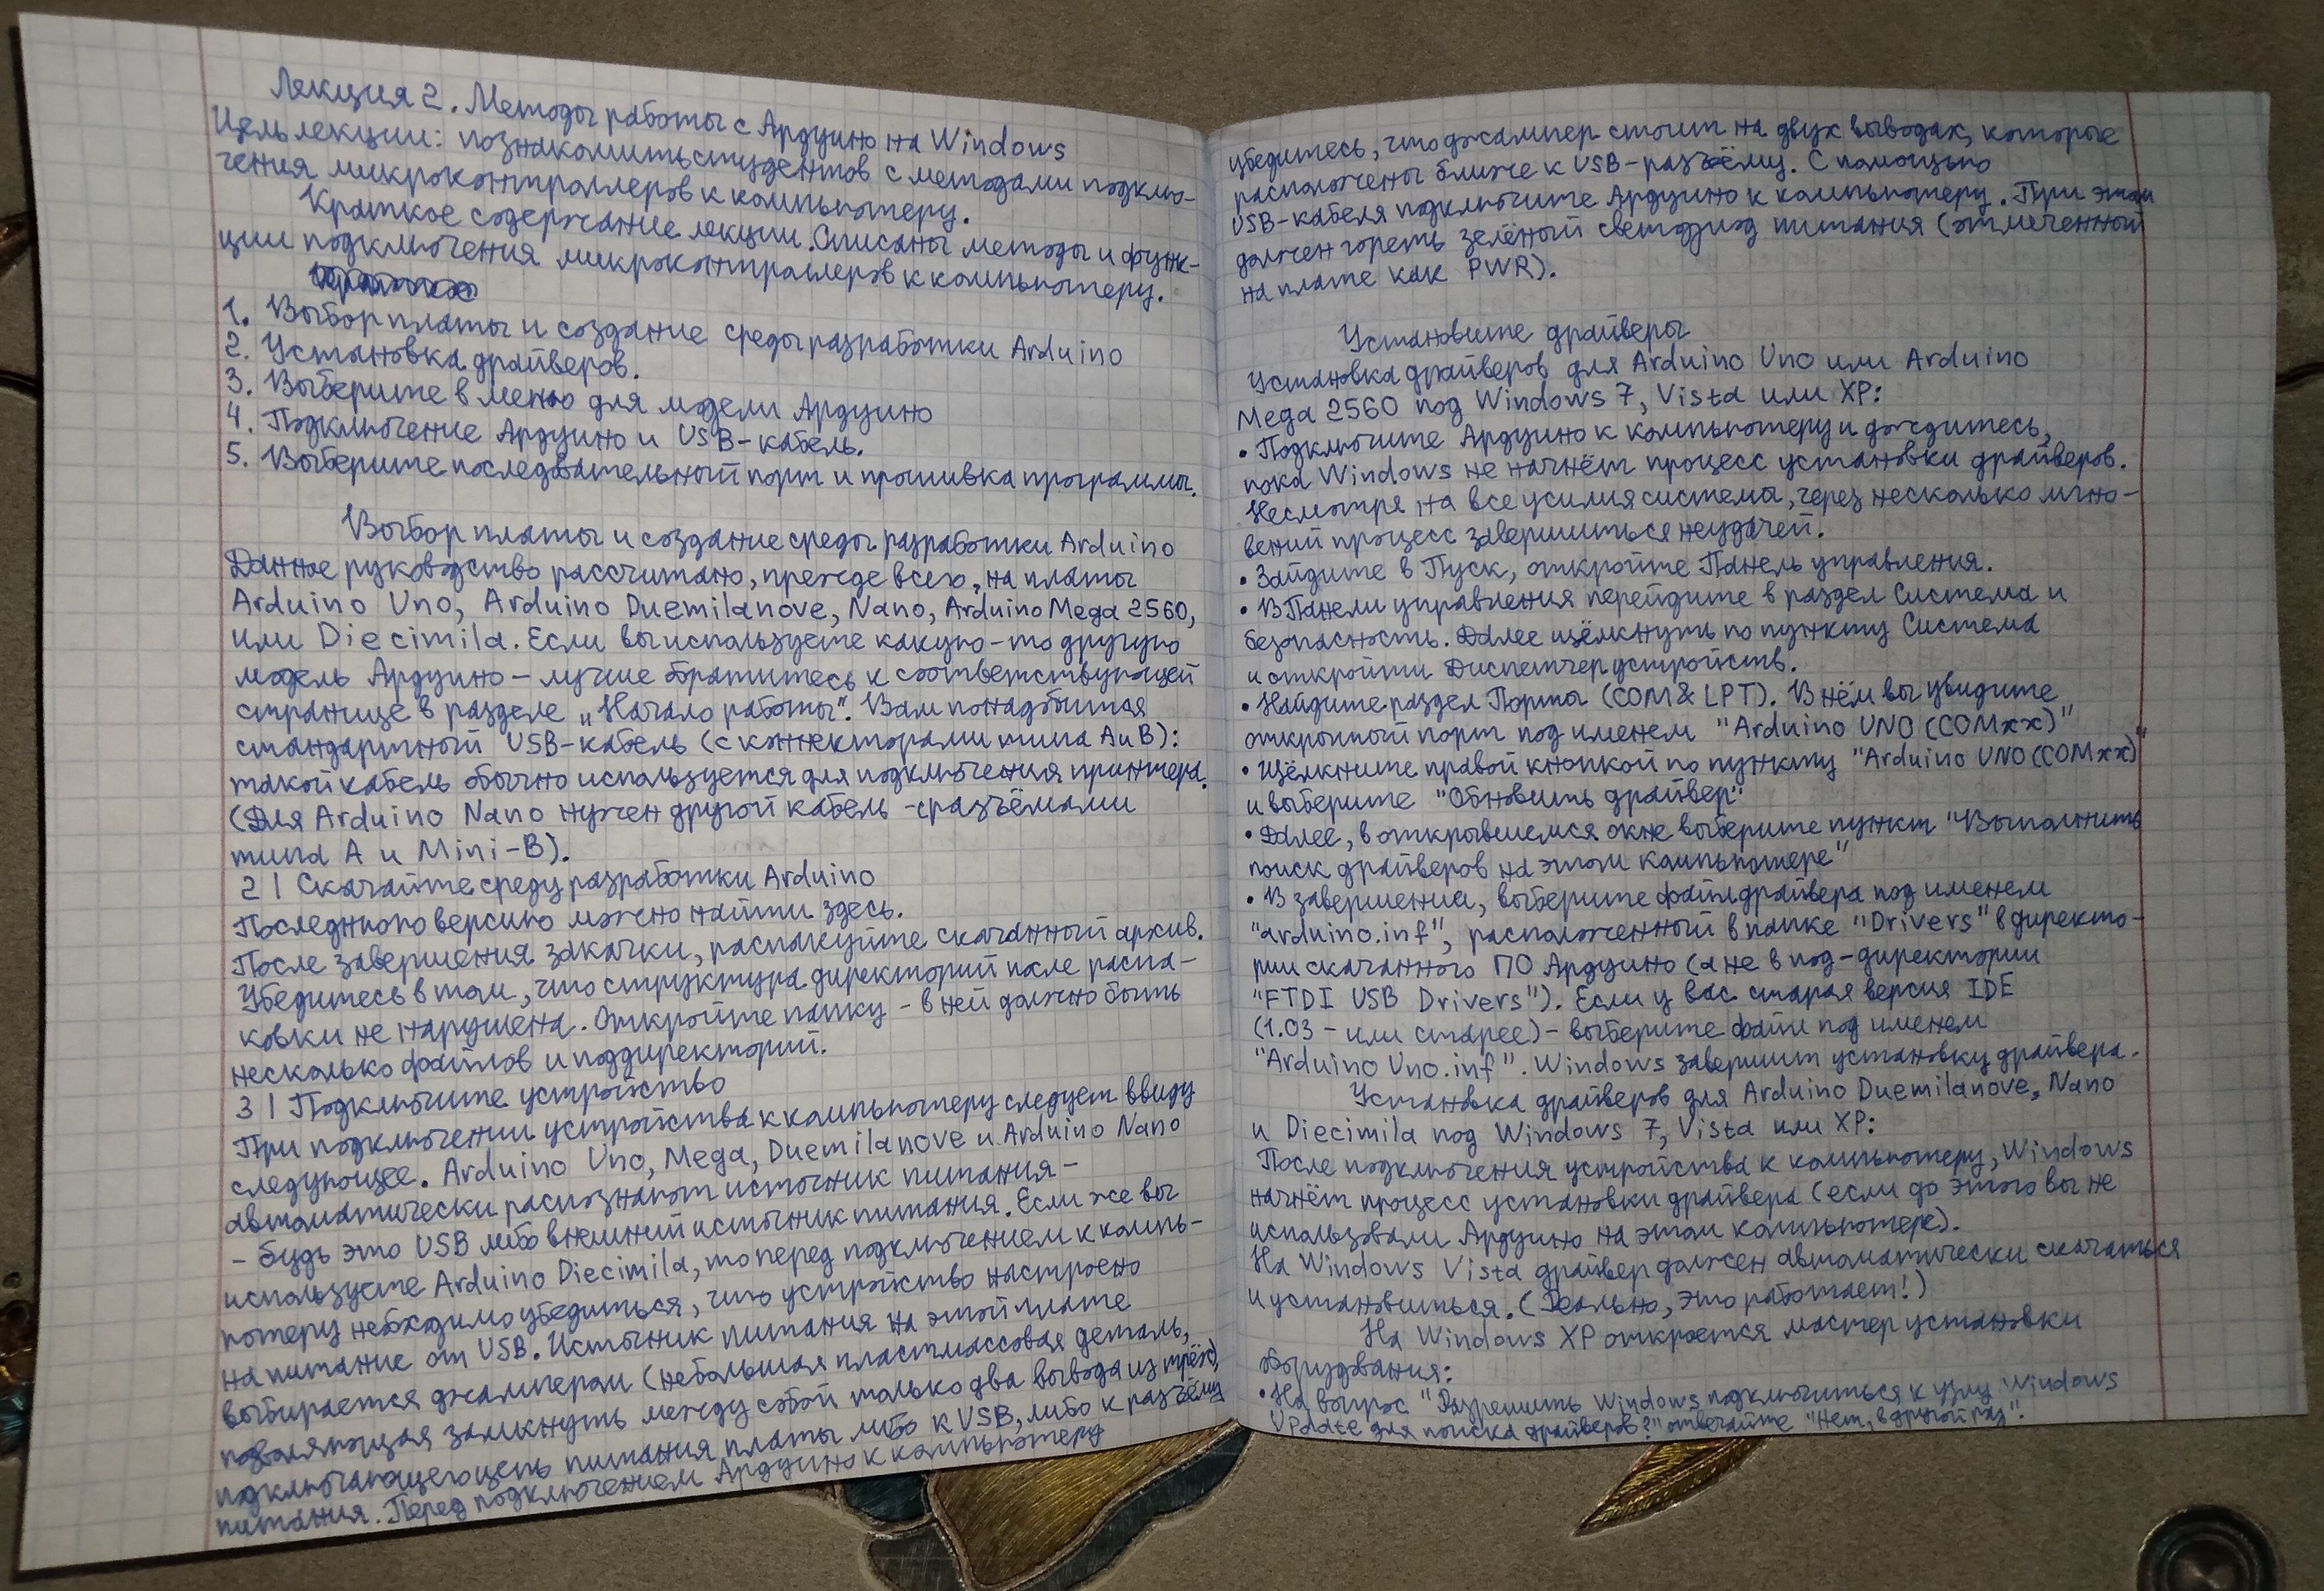 Лекция 2. Методы работы с Ардуино на Windows
Цель лекции: познакомить студентов с методами подклю-
чения микроконтроллеров к компьютеру.
Краткое содержание лекции. Описаны методы и функ-
ции подключения микроконтроллеров к компьютеру.
1. Выбор платы и создание среды разработки Arduino
2. Установка драйверов.
3. Выберите в меню для модели Ардуино
4. Подключение Ардуино и USB-кабель.
5. Выберите последовательный порт и прошивка программы.
Выбор платы и создание среды разработки Arduino
Данное руководство рассчитано, прежде всего, на платы
Arduino Uno, Arduino Duemilanove, Nano, Arduino Mega 2560,
или Diecimila. Если вы используете какую-то другую
модель Ардуино - лучше обратитесь к соответствующей
странице в разделе „Начало работы". Вам понадобится
стандартный USB-кабель (с коннекторами типа A и B):
такой кабель обычно используется для подключения принтера.
(Для Arduino Nano нужен другой кабель - с разъёмами
типа A и Mini-B).
2 | Скачайте среду разработки Arduino
Последнюю версию можно найти здесь.
После завершения закачки, распакуйте скачанный архив.
Убедитесь в том, что структура директорий после распа-
ковки не нарушена. Откройте папку - в ней должно быть
несколько файлов и поддиректорий.
3 | Подключите устройство
При подключении устройства к компьютеру следует ввиду
следующее. Arduino Uno, Mega, Duemilanove и Arduino Nano
автоматически распознают источник питания -
- будь это USB либо внешний источник питания. Если же вы
используете Arduino Diecimila, то перед подключением к компь-
ютеру необходимо убедиться, что устройство настроено
на питание от USB. Источник питания на этой плате
выбирается джампером (небольшая пластмассовая деталь,
позволяющая замкнуть между собой только два вывода из трёх),
подключающего цепь питания платы либо к USB, либо к разъёму
питания. Перед подключением Ардуино к компьютеру
убедитесь, что джампер стоит на двух выводах, которые
расположены ближе к USB-разъёму. С помощью
USB-кабеля подключите Ардуино к компьютеру. При этом
должен гореть зелёный светодиод питания (отмеченный
на плате как PWR).
Установите драйверы
Установка драйверов для Arduino Uno или Arduino
Mega 2560 под Windows 7, Vista или XP:
• Подключите Ардуино к компьютеру и дождитесь,
пока Windows не начнёт процесс установки драйверов.
Несмотря на все усилия система, через несколько мгно-
вений процесс завершиться неудачей.
• Зайдите в Пуск, откройте Панель управления.
• В Панели управления перейдите в раздел Система и
безопасность. Далее щёлкнуть по пункту Система
и откройти Диспетчер устройств.
• Найдите раздел Порты (COM & LPT). В нём вы увидите
открытый порт под именем "Arduino UNO (COMxx)"
• Щёлкните правой кнопкой по пункту "Arduino UNO (COMxx)"
и выберите "Обновить драйвер"
• Далее, в открывшемся окне выберите пункт "Выполнить
поиск драйверов на этом компьютере"
• В завершении, выберите файл драйвера под именем
"arduino.inf", расположенный в папке "Drivers" в директо-
рии скачанного ПО Ардуино (а не в под-директории
"FTDI USB Drivers"). Если у вас старая версия IDE
(1.03 - или старее) - выберите файл под именем
"Arduino Uno.inf". Windows завершит установку драйвера.
Установка драйверов для Arduino Duemilanove, Nano
и Diecimila под Windows 7, Vista или XP:
После подключения устройства к компьютеру, Windows
начнёт процесс установки драйвера (если до этого вы не
использовали Ардуино на этом компьютере).
На Windows Vista драйвер должен автоматически скачаться
и установиться. (Реально, это работает!)
На Windows XP откроется мастер установки
оборудования:
• На вопрос "Разрешить Windows подключиться к узлу Windows
Update для поиска драйверов?" отвечайте "Нет, в другой раз".